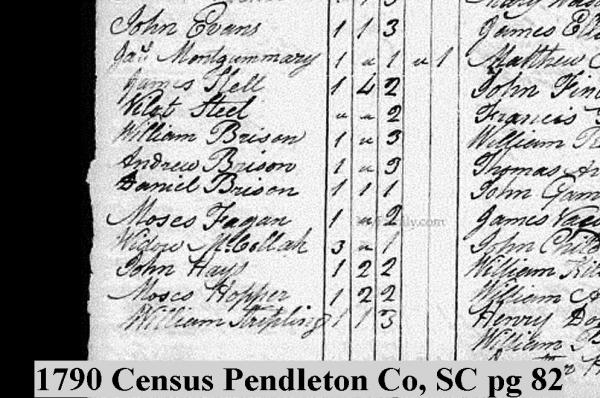 1 1 3 Mary
John Evans 1 1 3 James
Jas. Montgummary 1 " 1 " 1 Matthew
James Stell 1 4 2 John
Vilot Steel " " 2 Francis
William Brison 1 " 3 William
Andrew Brison 1 " 3 Thomas
Daniel Brison 1 1 1 John
Moses Fagan 1 " 2 James
Widow McCollah 3 " 1 John
John Hays 1 2 2 William
Moses Hopper 1 2 2 William A
William Stripling 1 1 3 Henry
William B
1790 Census Pendleton Co, SC pg 82